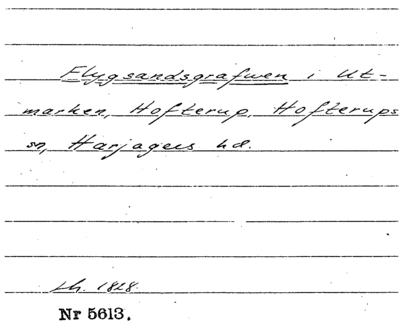 Flygsandsgrafwen i Ut-
marken, Hofterup, Hofterups
sn, Harjagers hd.
Lh. 1828.
Nr 5613.